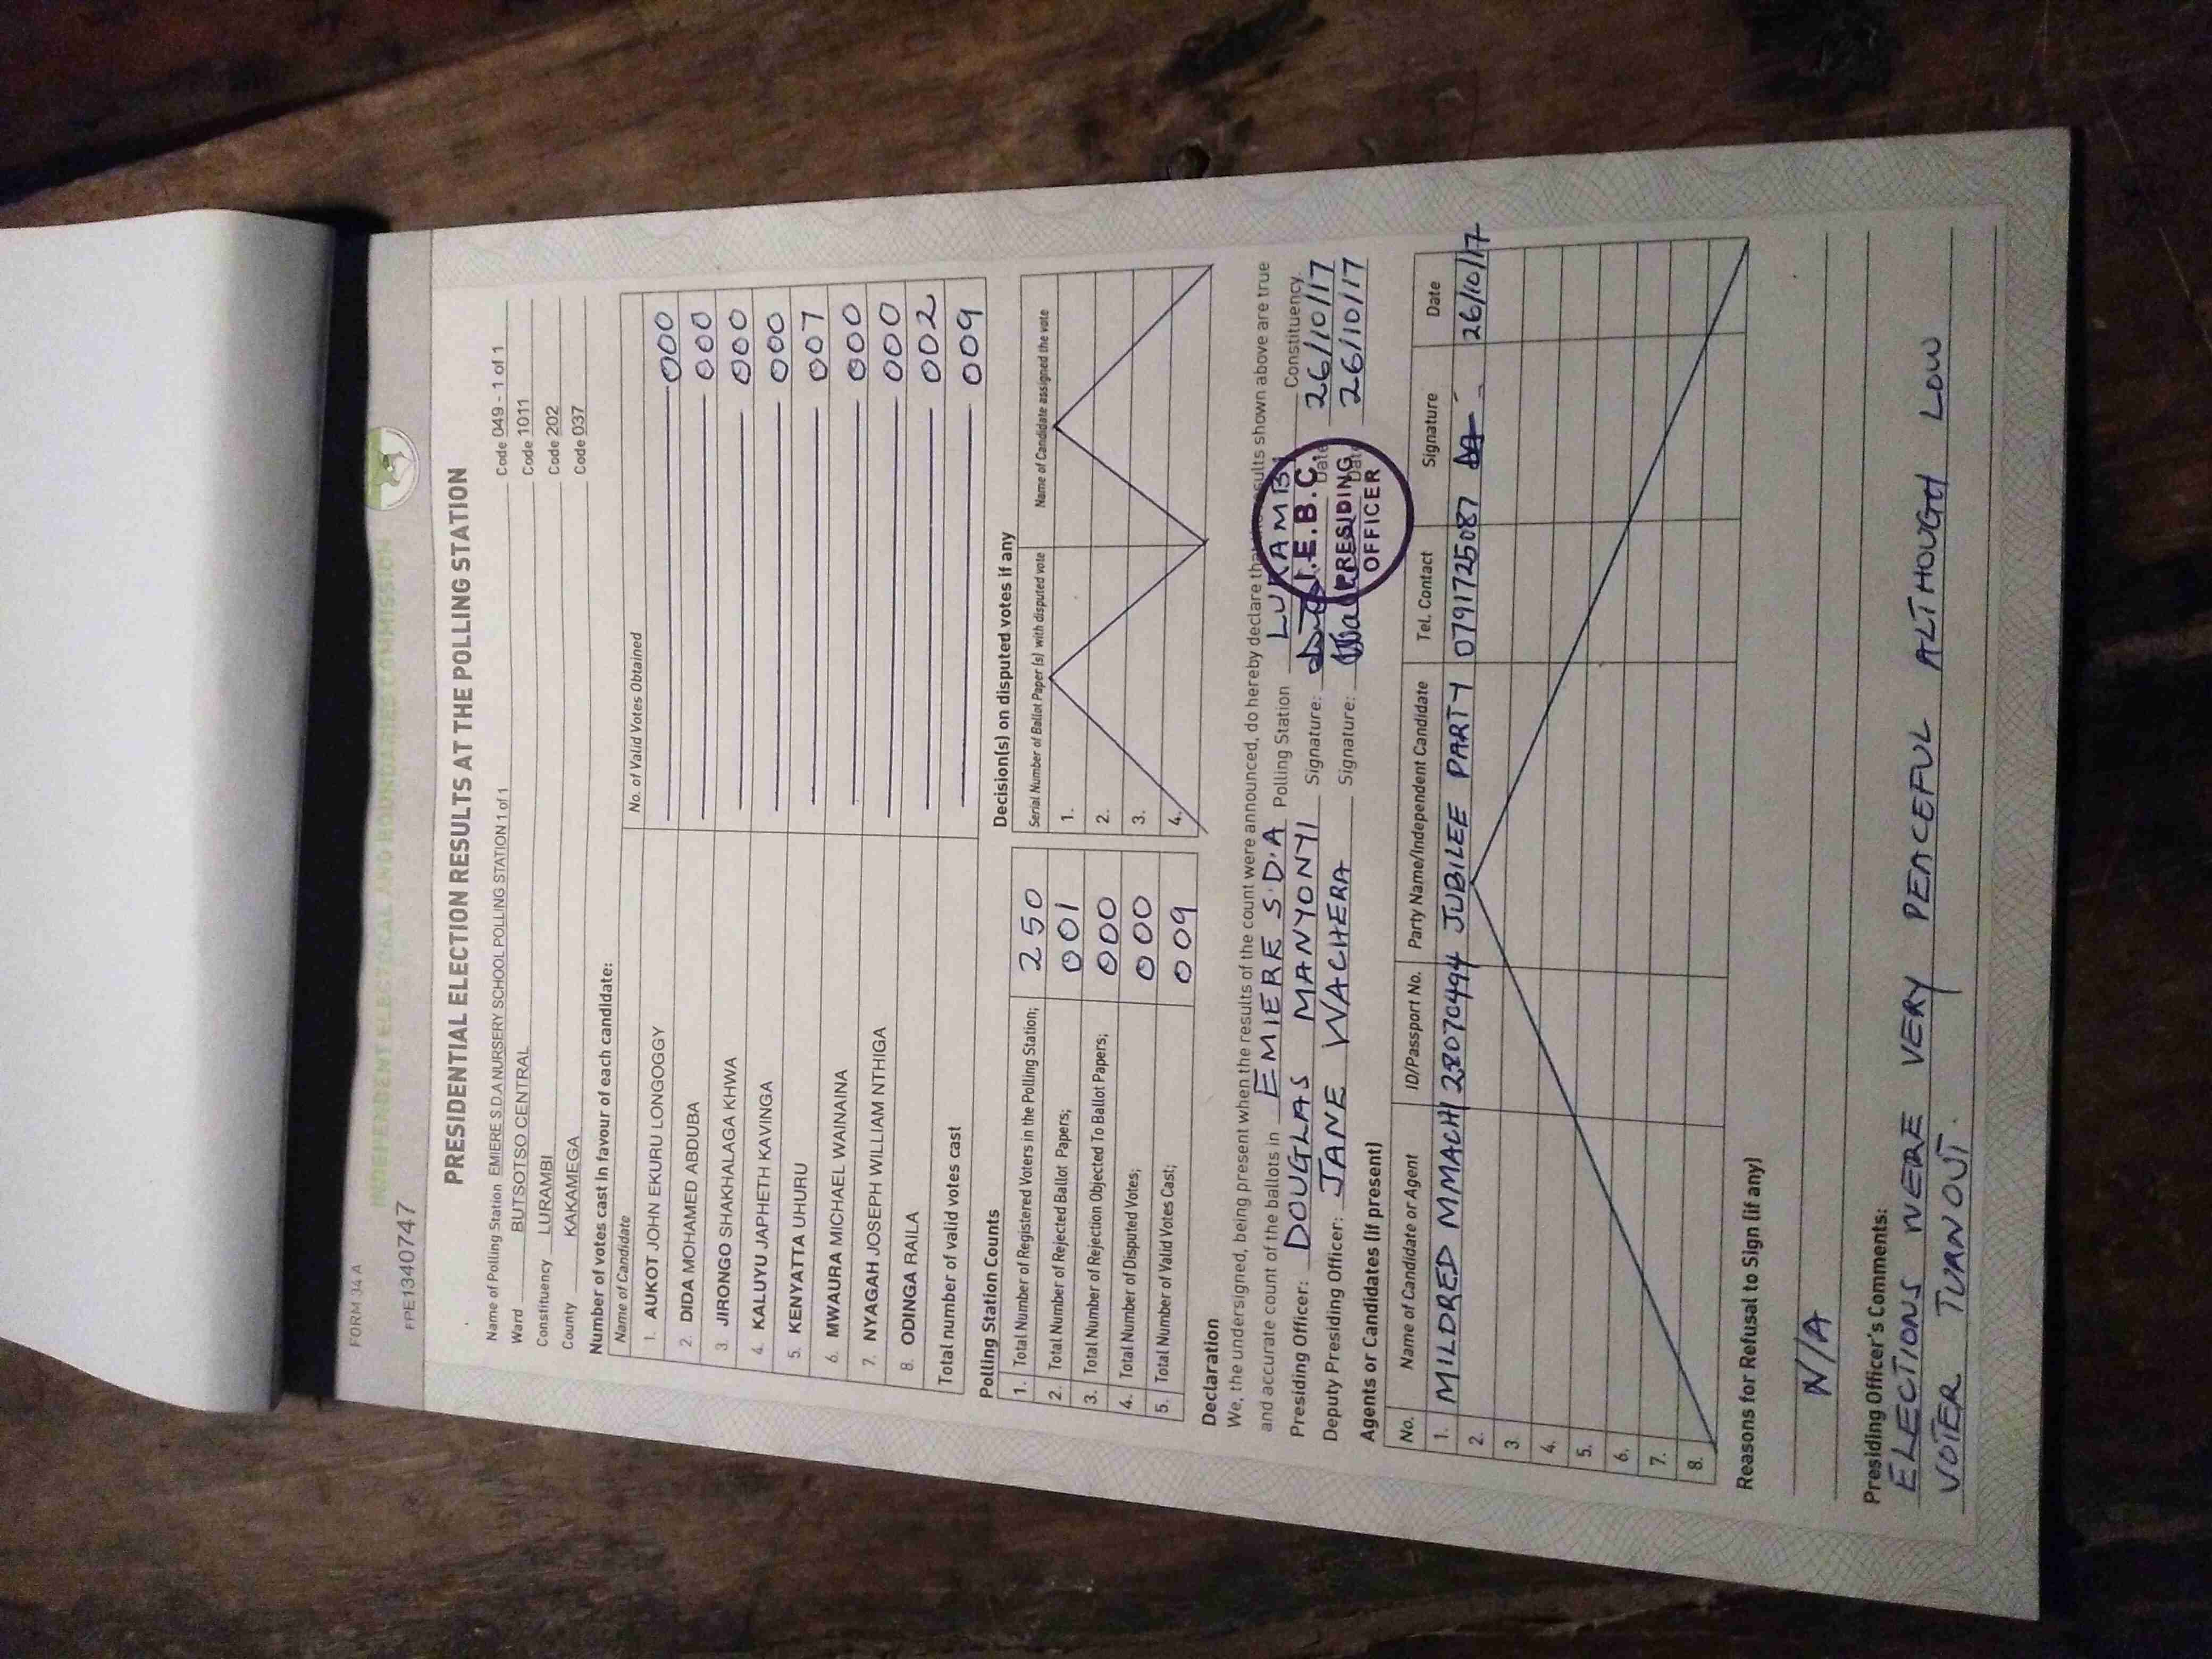 FORM 34 A
INDEPENDENT ELECTORAL AND BOUNDARIES COMMISSION
FPE1340747
PRESIDENTIAL ELECTION RESULTS AT THE POLLING STATION
Name of Polling Station EMIERE S.D.A NURSERY SCHOOL POLLING STATION 1 of 1 Code 049 - 1 of 1
Ward BUTSOTSO CENTRAL Code 1011
Constituency LURAMBI Code 202
County KAKAMEGA Code 037
Number of votes cast in favour of each candidate:
Name of Candidate No. of Valid Votes Obtained
1. AUKOT JOHN EKURU LONGOGGY 000
2. DIDA MOHAMED ABDUBA 000
3. JIRONGO SHAKHALAGA KHWA 000
4. KALUYU JAPHETH KAVINGA 000
5. KENYATTA UHURU 007
6. MWAURA MICHAEL WAINAINA 000
7. NYAGAH JOSEPH WILLIAM NTHIGA 000
8. ODINGA RAILA 002
Total number of valid votes cast 009
Polling Station Counts
1. Total Number of Registered Voters in the Polling Station; 250
2. Total Number of Rejected Ballot Papers; 001
3. Total Number of Rejection Objected To Ballot Papers; 000
4. Total Number of Disputed Votes; 000
5. Total Number of Valid Votes Cast; 009
Decision(s) on disputed votes if any
Serial Number of Ballot Paper (s) with disputed vote Name of Candidate assigned the vote
1.
2.
3.
4.
Declaration
We, the undersigned, being present when the results of the count were announced, do hereby declare that the results shown above are true
and accurate count of the ballots in EMIERE S.D.A Polling Station LURAMBI Constituency.
Presiding Officer: DOUGLAS MANYONYI Signature: Date 26/10/17
Deputy Presiding Officer: JANE WACHERA Signature: Date 26/10/17
I.E.B.C.
PRESIDING
OFFICER
Agents or Candidates (if present)
No. Name of Candidate or Agent ID/Passport No. Party Name/Independent Candidate Tel. Contact Signature Date
1. MILDRED MMACHI 28070494 JUBILEE PARTY 0791725087 26/10/17
2.
3.
4.
5.
6.
7.
8.
Reasons for Refusal to Sign (if any)
N/A
Presiding Officer's Comments:
ELECTIONS WERE VERY PEACEFUL ALTHOUGH LOW
VOTER TURNOUT.